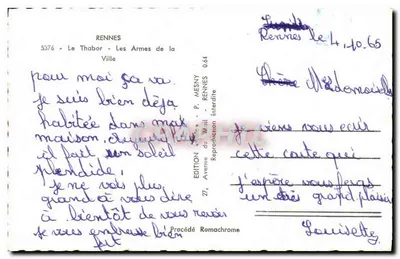 RENNES
5376 - Le Thabor - Les Armes de la
Ville
pour moi ça va
je suis bien déja
habituée dans ma
maison. Aujourd'hui
il fait un soleil
splendide,
je ne vois plus
grand à vous dire
à bientôt de vous revoir
je vous embrasse bien
fort
EDITION P. MESNY
27, Avenue du Mail - RENNES - 0.64
Reproduction interdite
Procédé Remachrome
Rennes le 4.10.65
Chère Mademoiselle
je viens vous écris
cette carte qui
j'espère vous feras
un très grand plaisir
Louisette